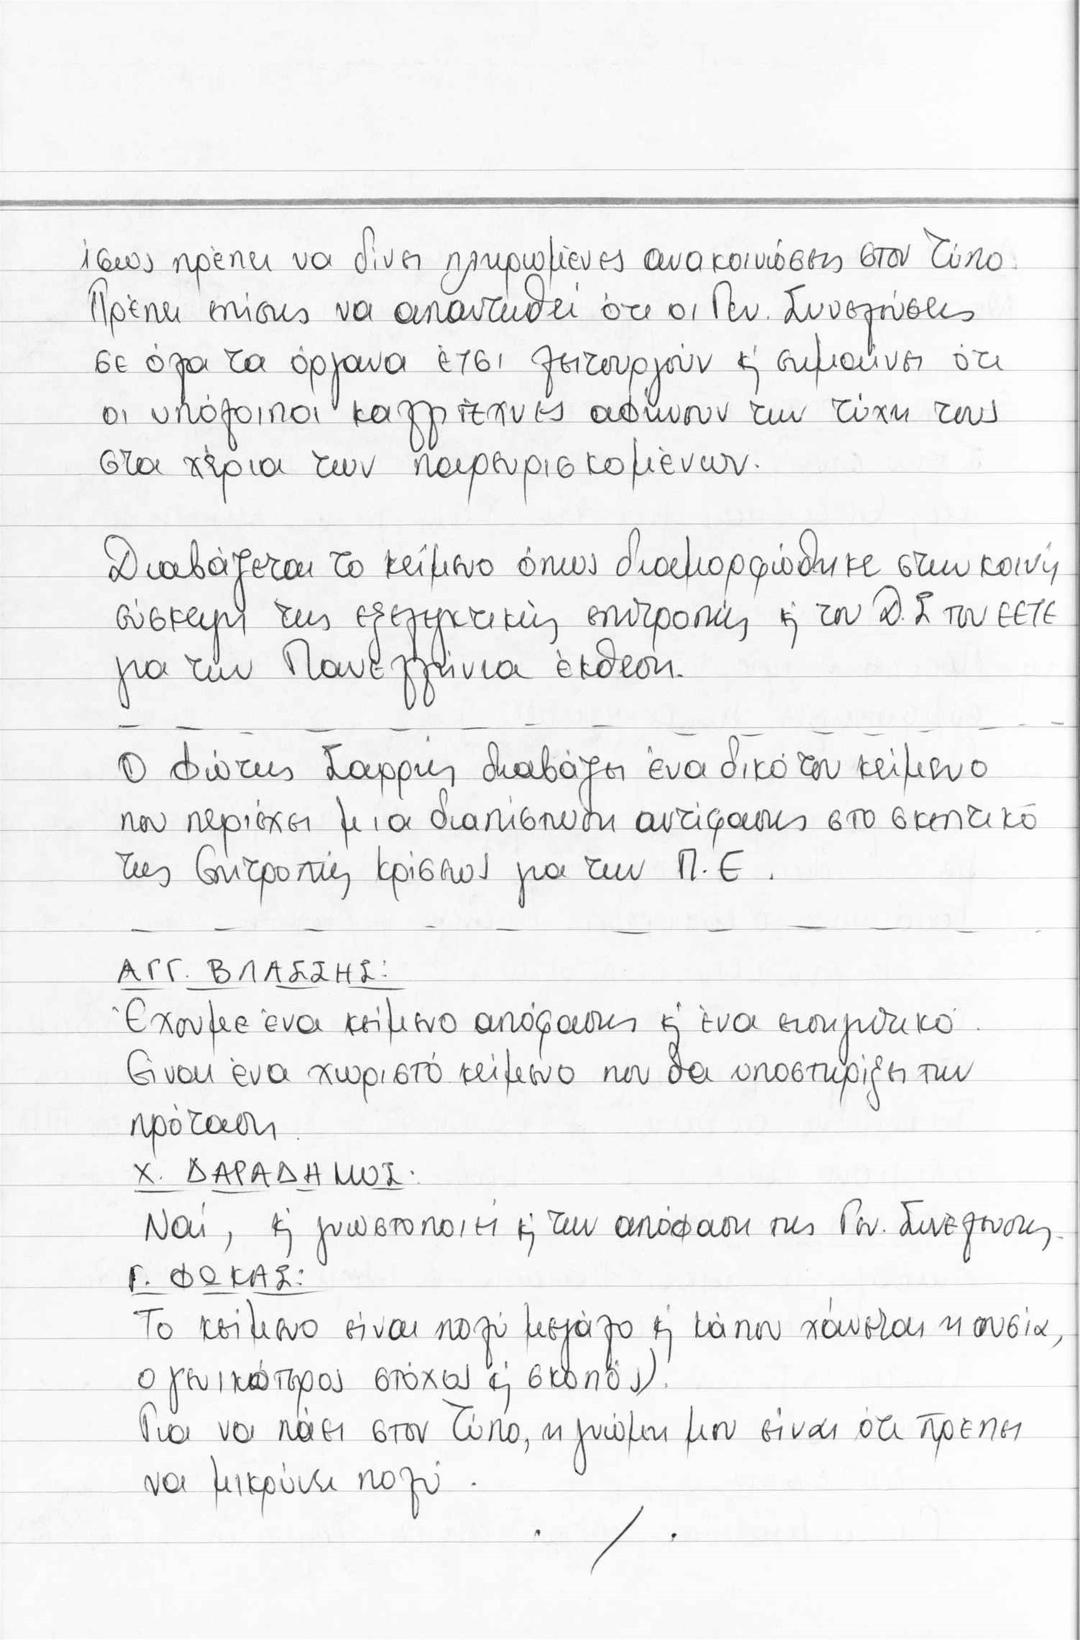 ίσως πρέπει να δίνει πληρωμένες ανακοινώσεις στον Τύπο.
Πρέπει επίσης να απαντηθεί ότι οι Γεν. Συνελεύσεις
σε όλα τα όργανα έτσι λειτουργούν κ' σημαίνει ότι
οι υπόλοιποι καλλιτέχνες αφήνουν την τύχη τους
στα χέρια των παρευρισκομένων.
Διαβάζεται το κείμενο όπως διαμορφώθηκε στην κοινή
σύσκεψη της εξελεγκτικής επιτροπής κ' του Δ.Σ του ΕΕΤΕ
για την Πανελλήνια έκθεση.
Ο Φώτης Σαρρής διαβάζει ένα δικό του κείμενο
που περιέχει μια διαπίστωση αντίφασης στο σκεπτικό
της Επιτροπής Κρίσεως για την Π.Ε.
ΑΓΓ. ΒΛΑΣΣΗΣ:
Έχουμε ένα κείμενο απόφασης κ' ένα εισηγητικό.
Είναι ένα χωριστό κείμενο που θα υποστηρίξει την
πρόταση.
Χ. ΔΑΡΑΔΗΜΟΣ:
Ναί, κ' γνωστοποιεί κ' την απόφαση της Γεν. Συνέλευσης.
Γ. ΦΩΚΑΣ:
Το κείμενο είναι πολύ μεγάλο κ' κάπου χάνεται η ουσία,
ο γενικότερος στόχος κ' σκοπός).
Για να πάει στον Τύπο, η γνώμη μου είναι ότι πρέπει
να μικρύνει πολύ.
. / .